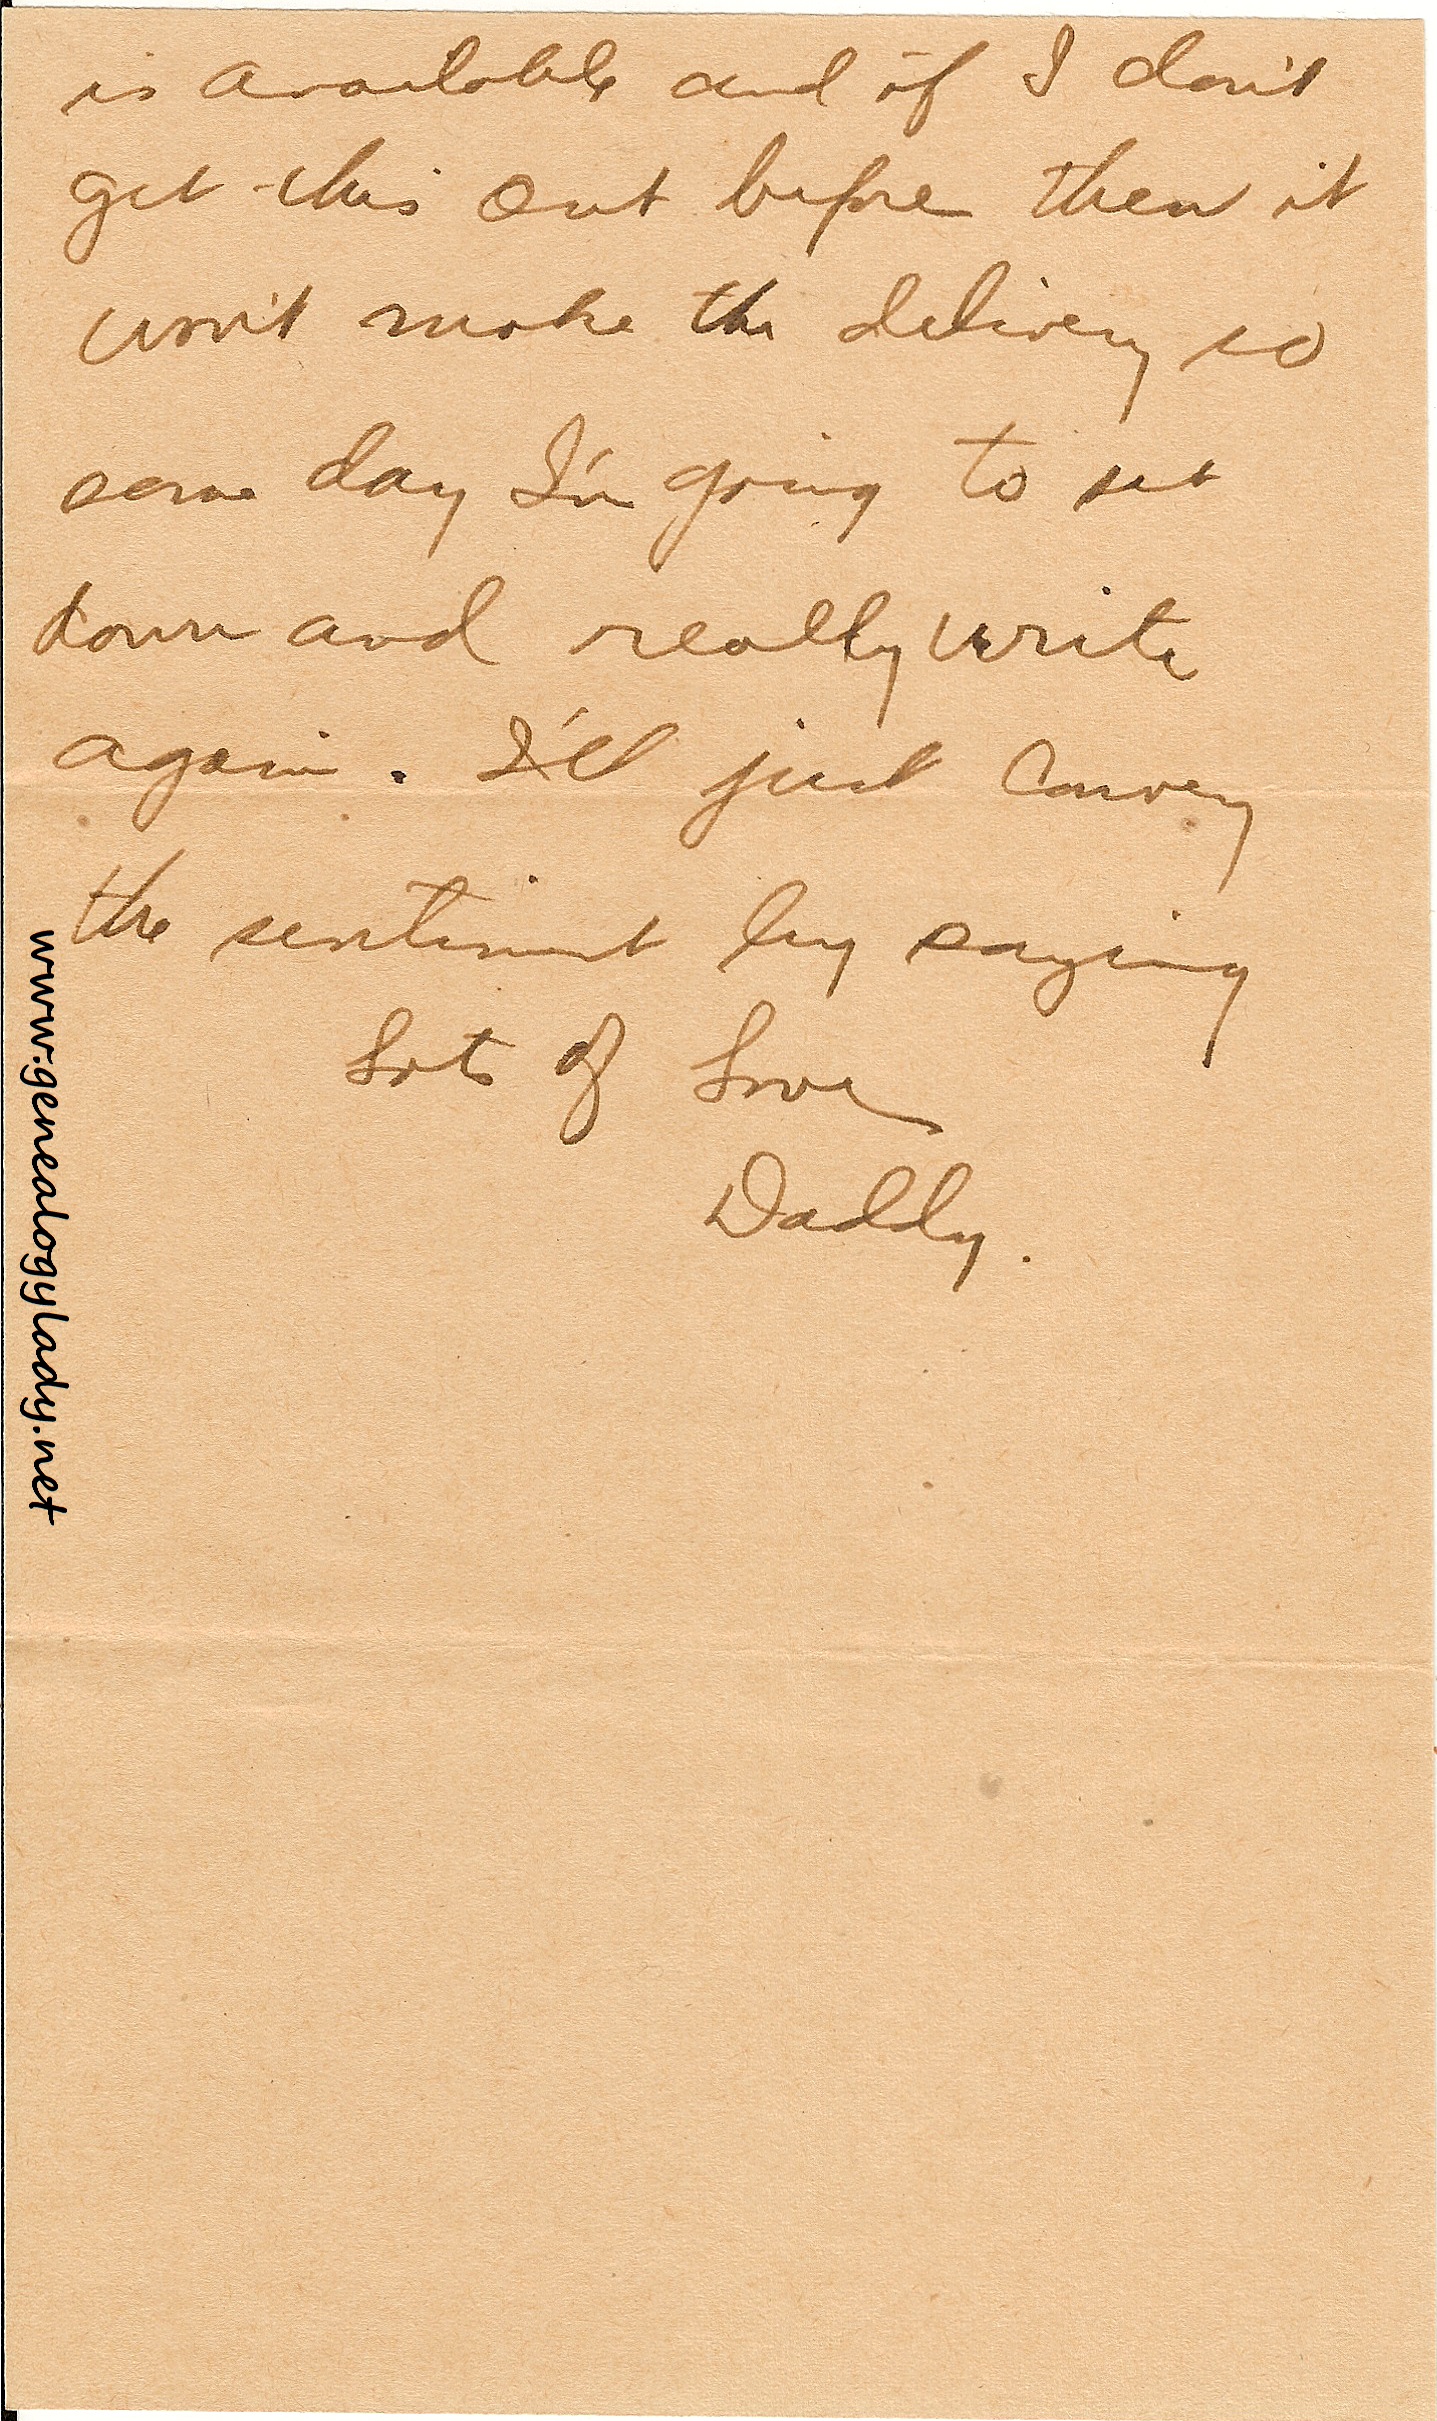 is available and if I don't
get this out before then it
won't make the delivery so
some day I'm going to set
down and really write
again. I'll just convey
the sentiment by saying
Lots of Love
Daddy.
www.genealogylady.net